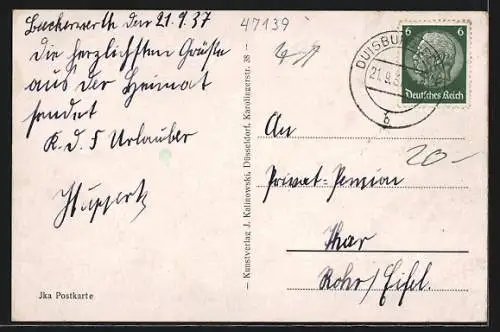 Beckerwerth den 21.9.37
die herzlichsten Grüße
aus der Heimat
sendet
K.d.F Urlauber
Huppertz
Jka Postkarte
— Kunstverlag J. Kalinowski, Düsseldorf, Karolingerstr. 38 —
47139
DUISBU
21.9.3
b
6 6
Deutsches Reich
20-
An
Privat-Pension
Thar
Rohr/Eifel.